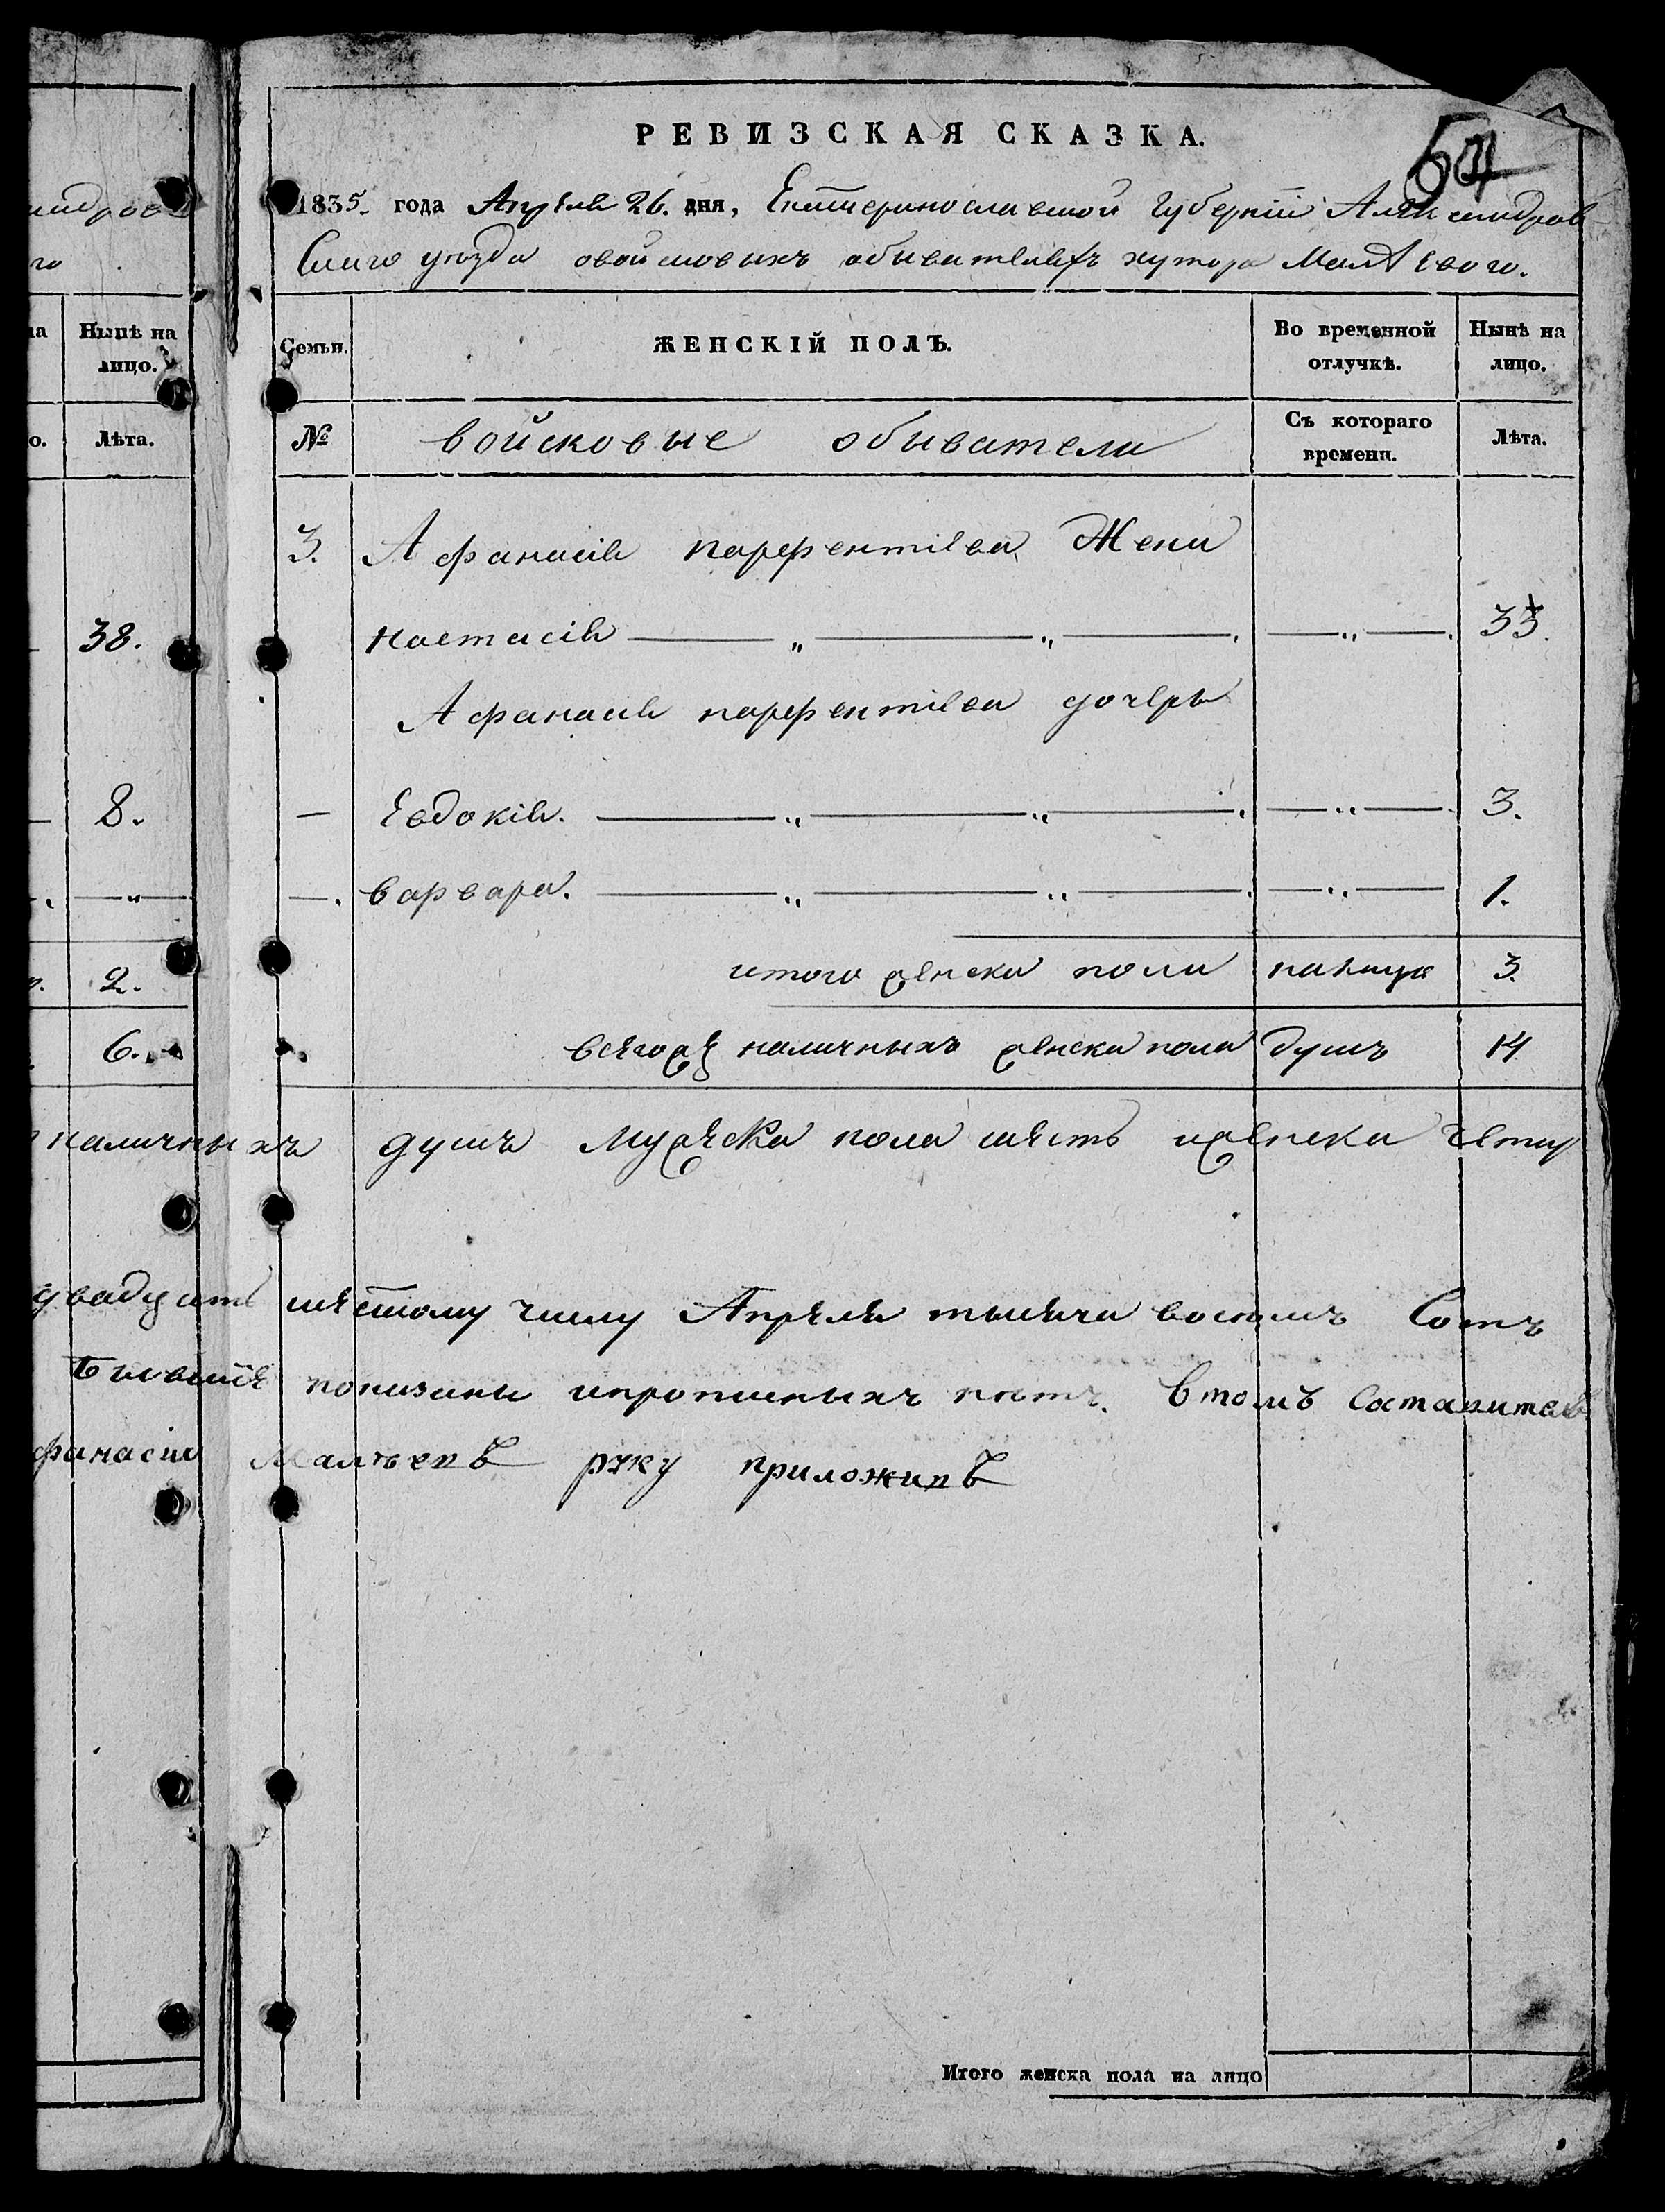 РЕВИЗСКАЯ СКАЗКА.
1835. года Апреля 26. дня, Екатеринославской Губернии Александров
скаго уезда овойсковыхъ обывателяхъ хутора Малтевого.
Нынѣ на лицо.
Семьи.
ЖЕНСКІЙ ПОЛЪ.
Во временной отлучкѣ.
Нынѣ на лицо.
Лѣта.
№
войсковые обыватели
Съ котораго времени.
Лѣта.
3. Афанасія парфентіева Жена
38.
настасія 33.
Афанасія парфентіева дочеры
8.
— Евдокія. 3.
—. варвара. 1.
2.
итого женска пола налицо 3.
6.
всягожъ наличныхъ женска пола душъ 14
наличныхъ душъ мужеска пола шесть иженска четы
двадцать шестому числу Апреля тысяча восемь Сотъ
показаны ипрописныхъ нетъ. втомъ Составитель
фанасій Малтеевъ руку приложилъ
Итого женска пола на лицо